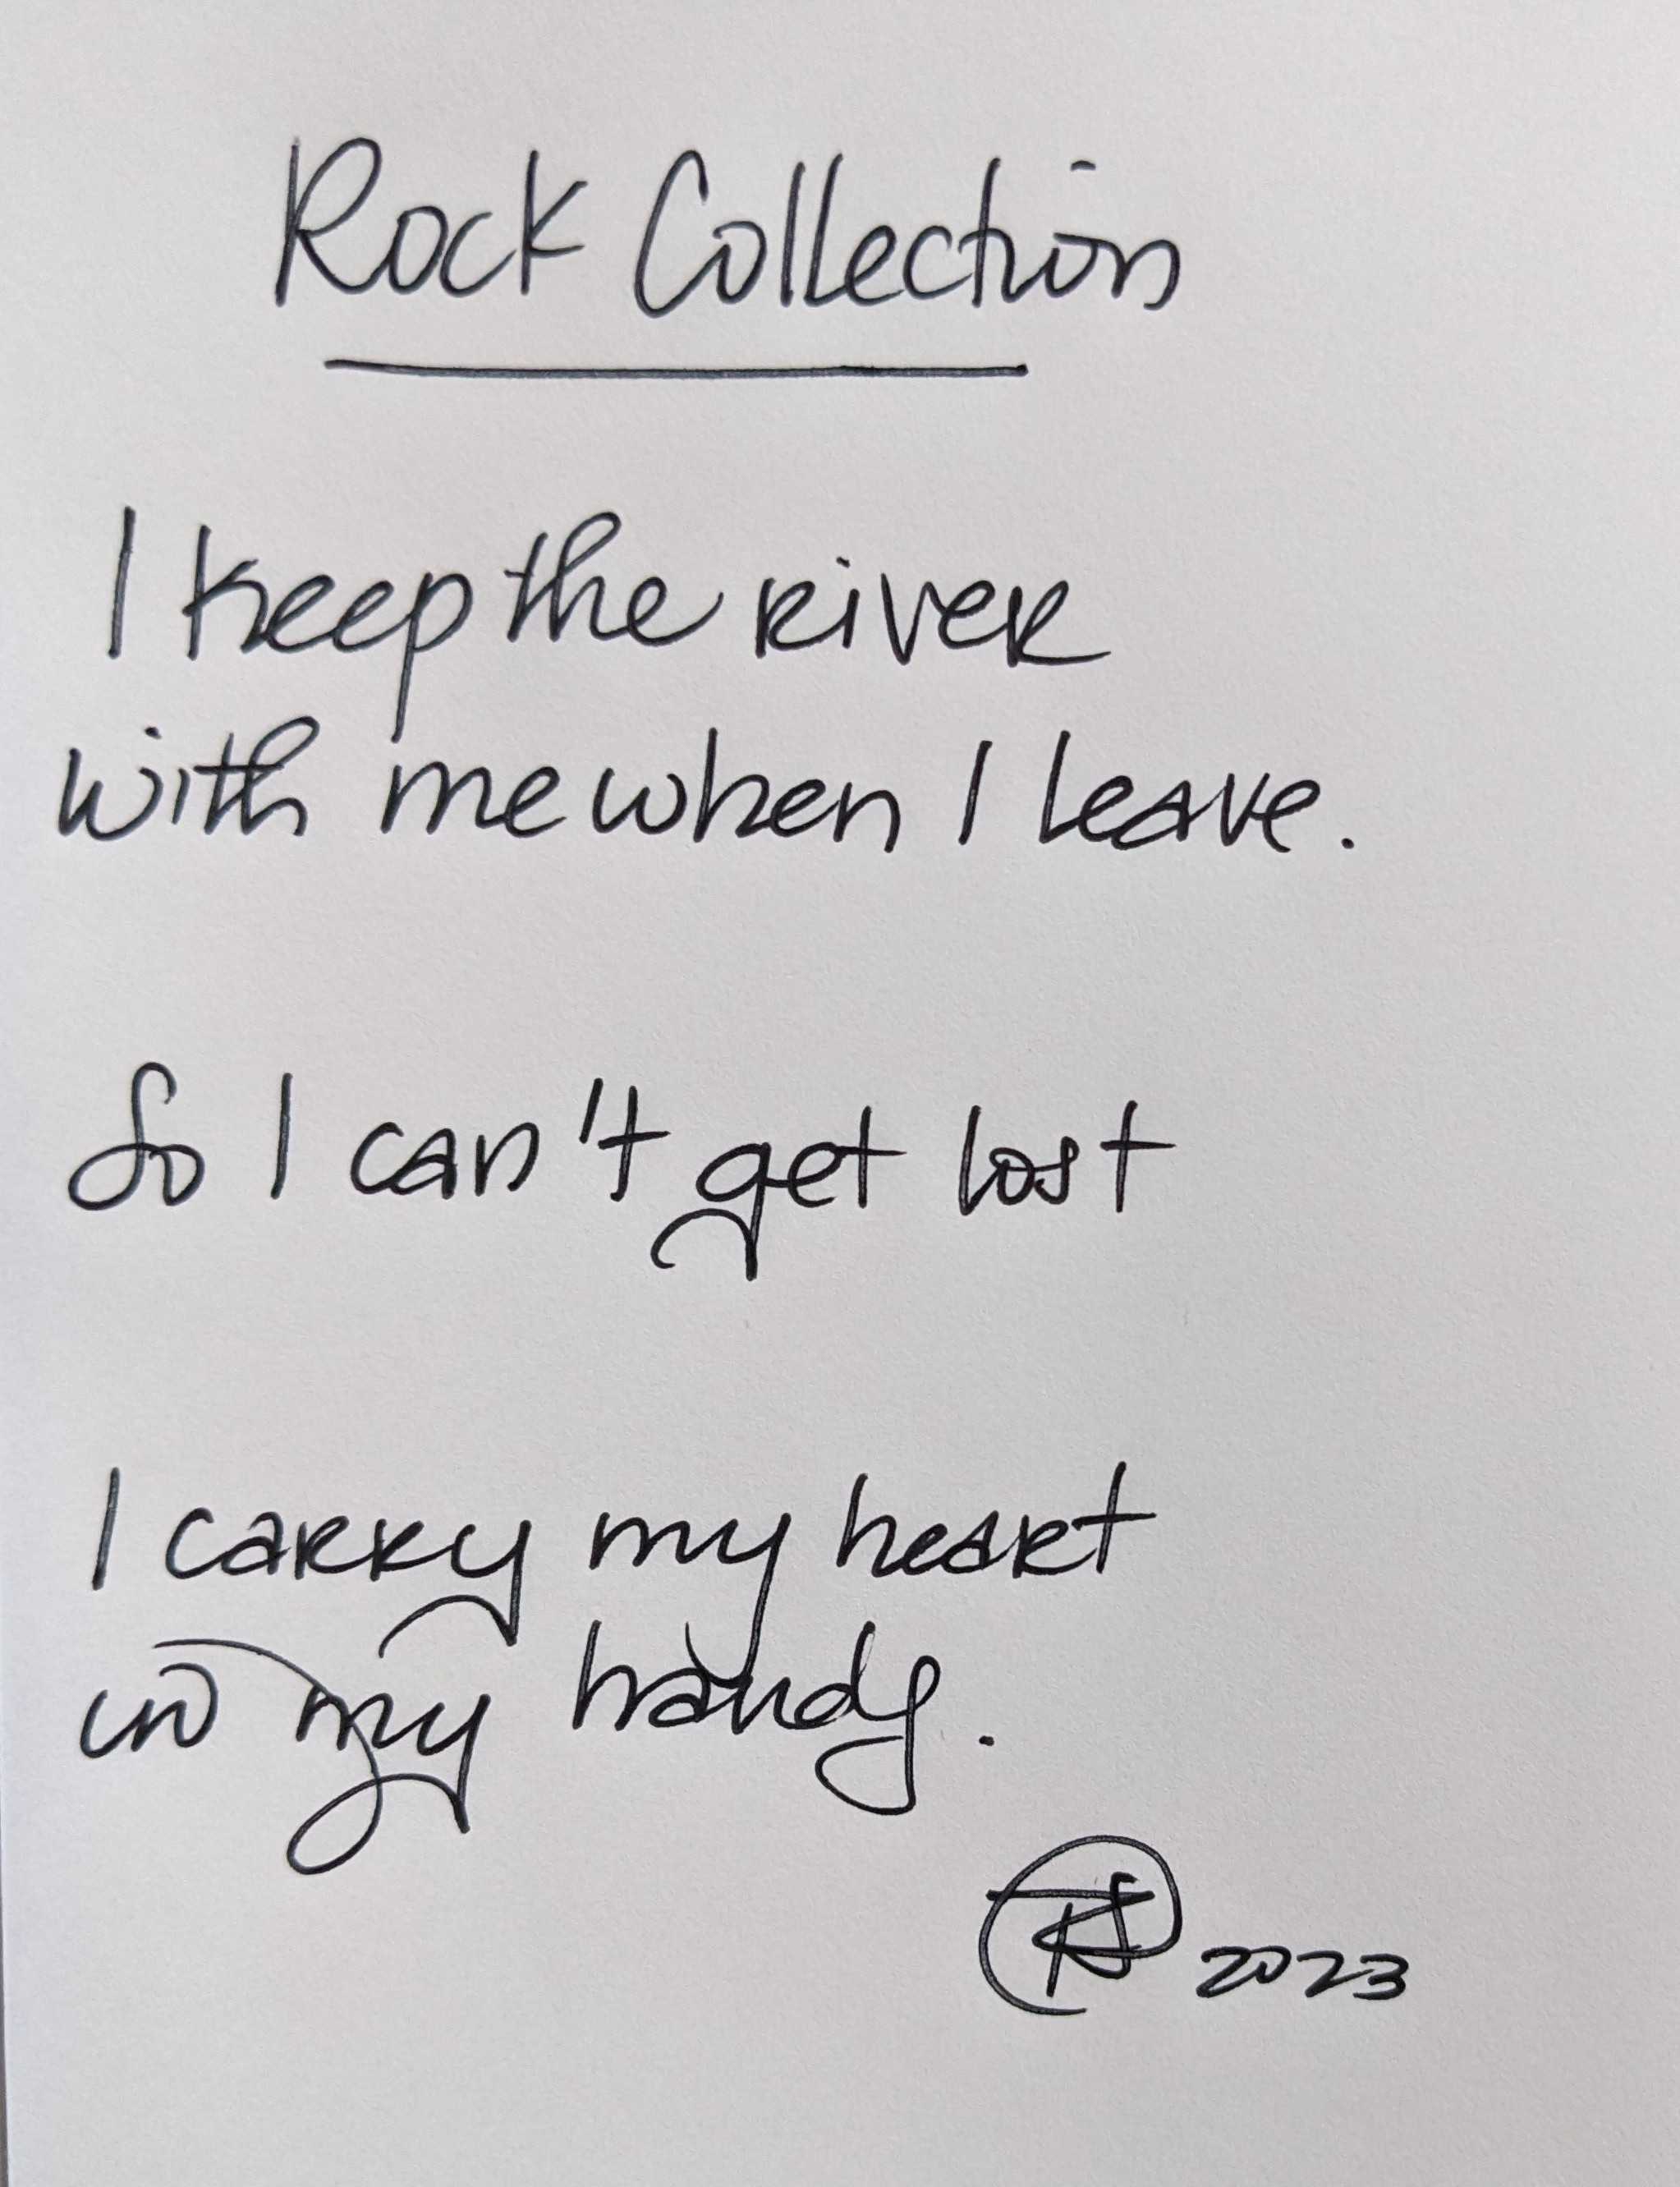 Rock Collection
I keep the river
with me when I leave.
So I can't get lost
I carry my heart
in my hands.
2023